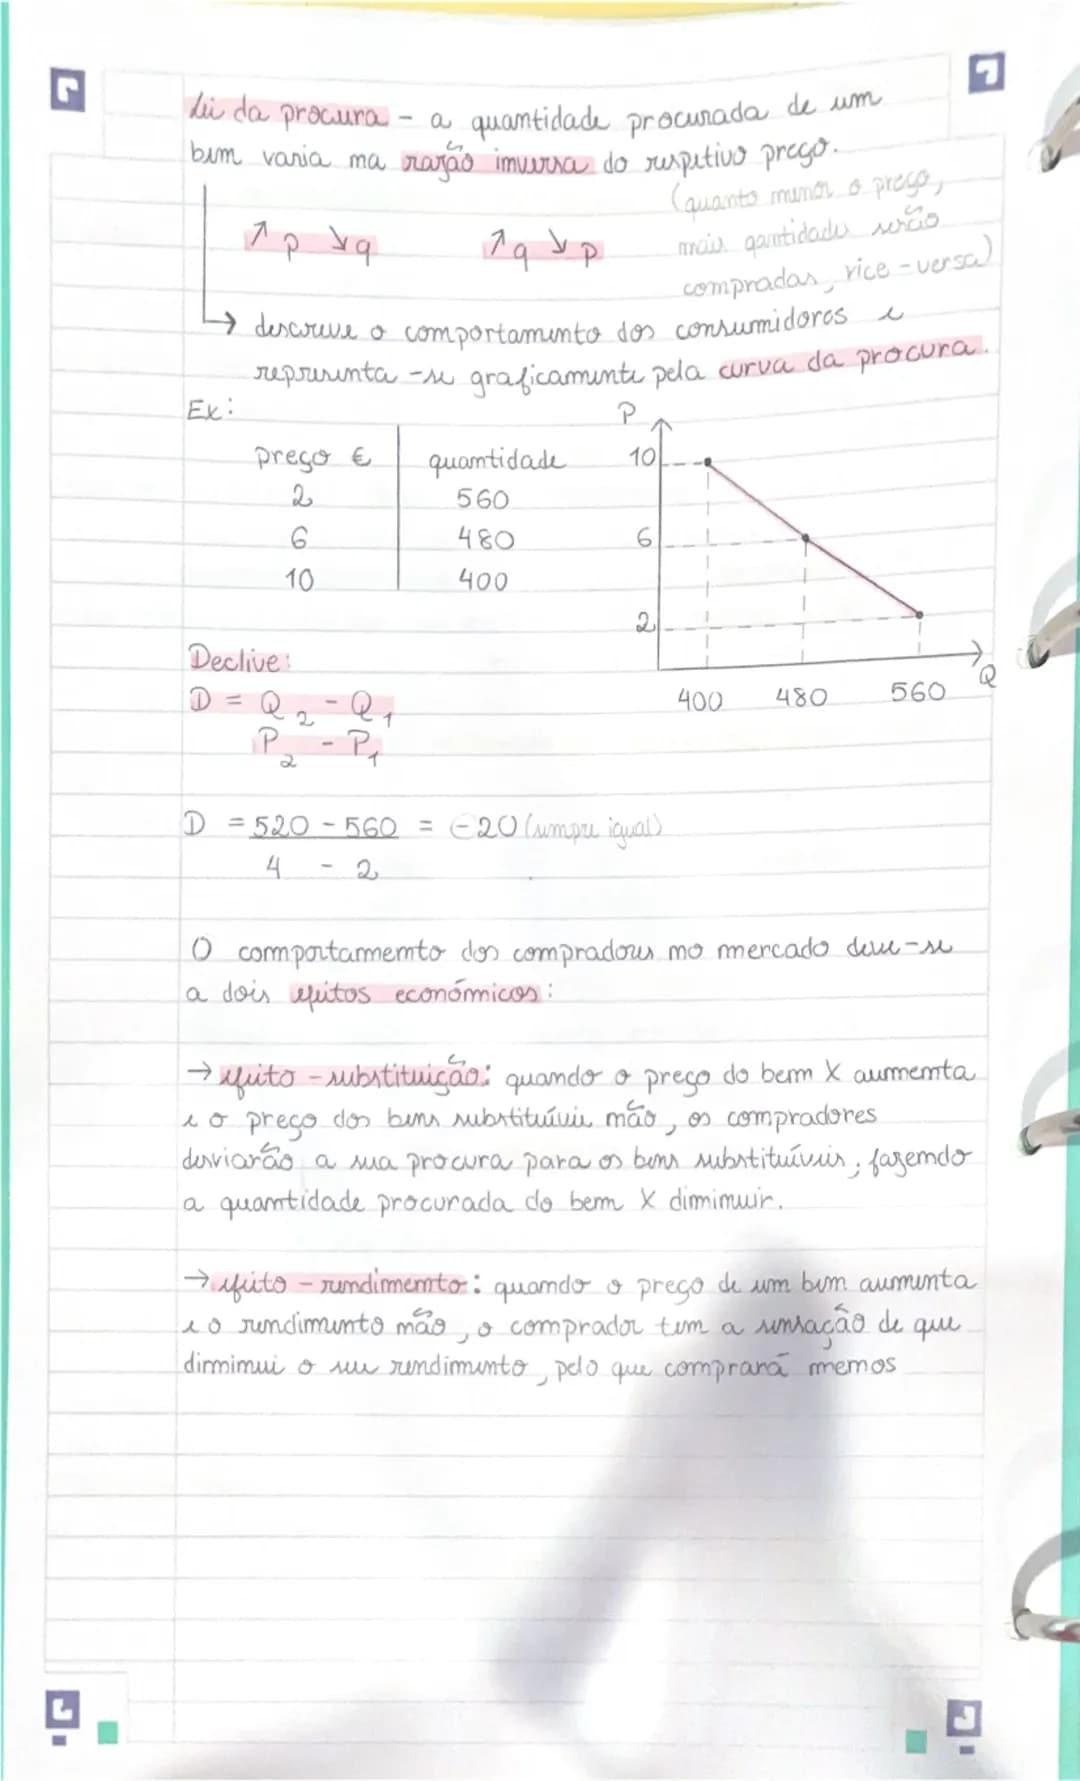 Lei da procura - a quantidade procurada de um
bem varia na razão inversa do respetivo preço.
(quanto menor o preço,
mais qantidades serão
compradas, vice-versa)
↗p ↘q ↗q ↘p
→ descreve o comportamento dos consumidores e
representa-se graficamente pela curva da procura.
Ex:
preço € quantidade
2 560
6 480
10 400
P
10
6
2
400 480 560
Q
Declive:
D = Q2 - Q1
P2 - P1
D = 520 - 560 = -20 (sempre igual)
4 - 2
O comportamento dos compradores no mercado deve-se
a dois efeitos económicos:
→ efeito-substituição: quando o preço do bem X aumenta
e o preço dos bens substituívei não, os compradores
desviarão a sua procura para os bens substituíveis, fazendo
a quantidade procurada do bem X diminuir.
→ efeito-rendimento: quando o preço de um bem aumenta
e o rendimento não, o comprador tem a sensação de que
diminui o seu rendimento, pelo que comprará menos